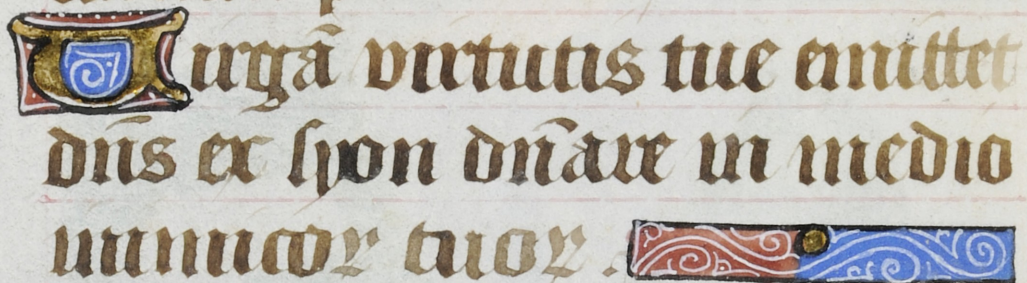 Uirgã virtutis tue emittet
dñs ex syon dñare in medio
inimicoꝝ tuoꝝ.